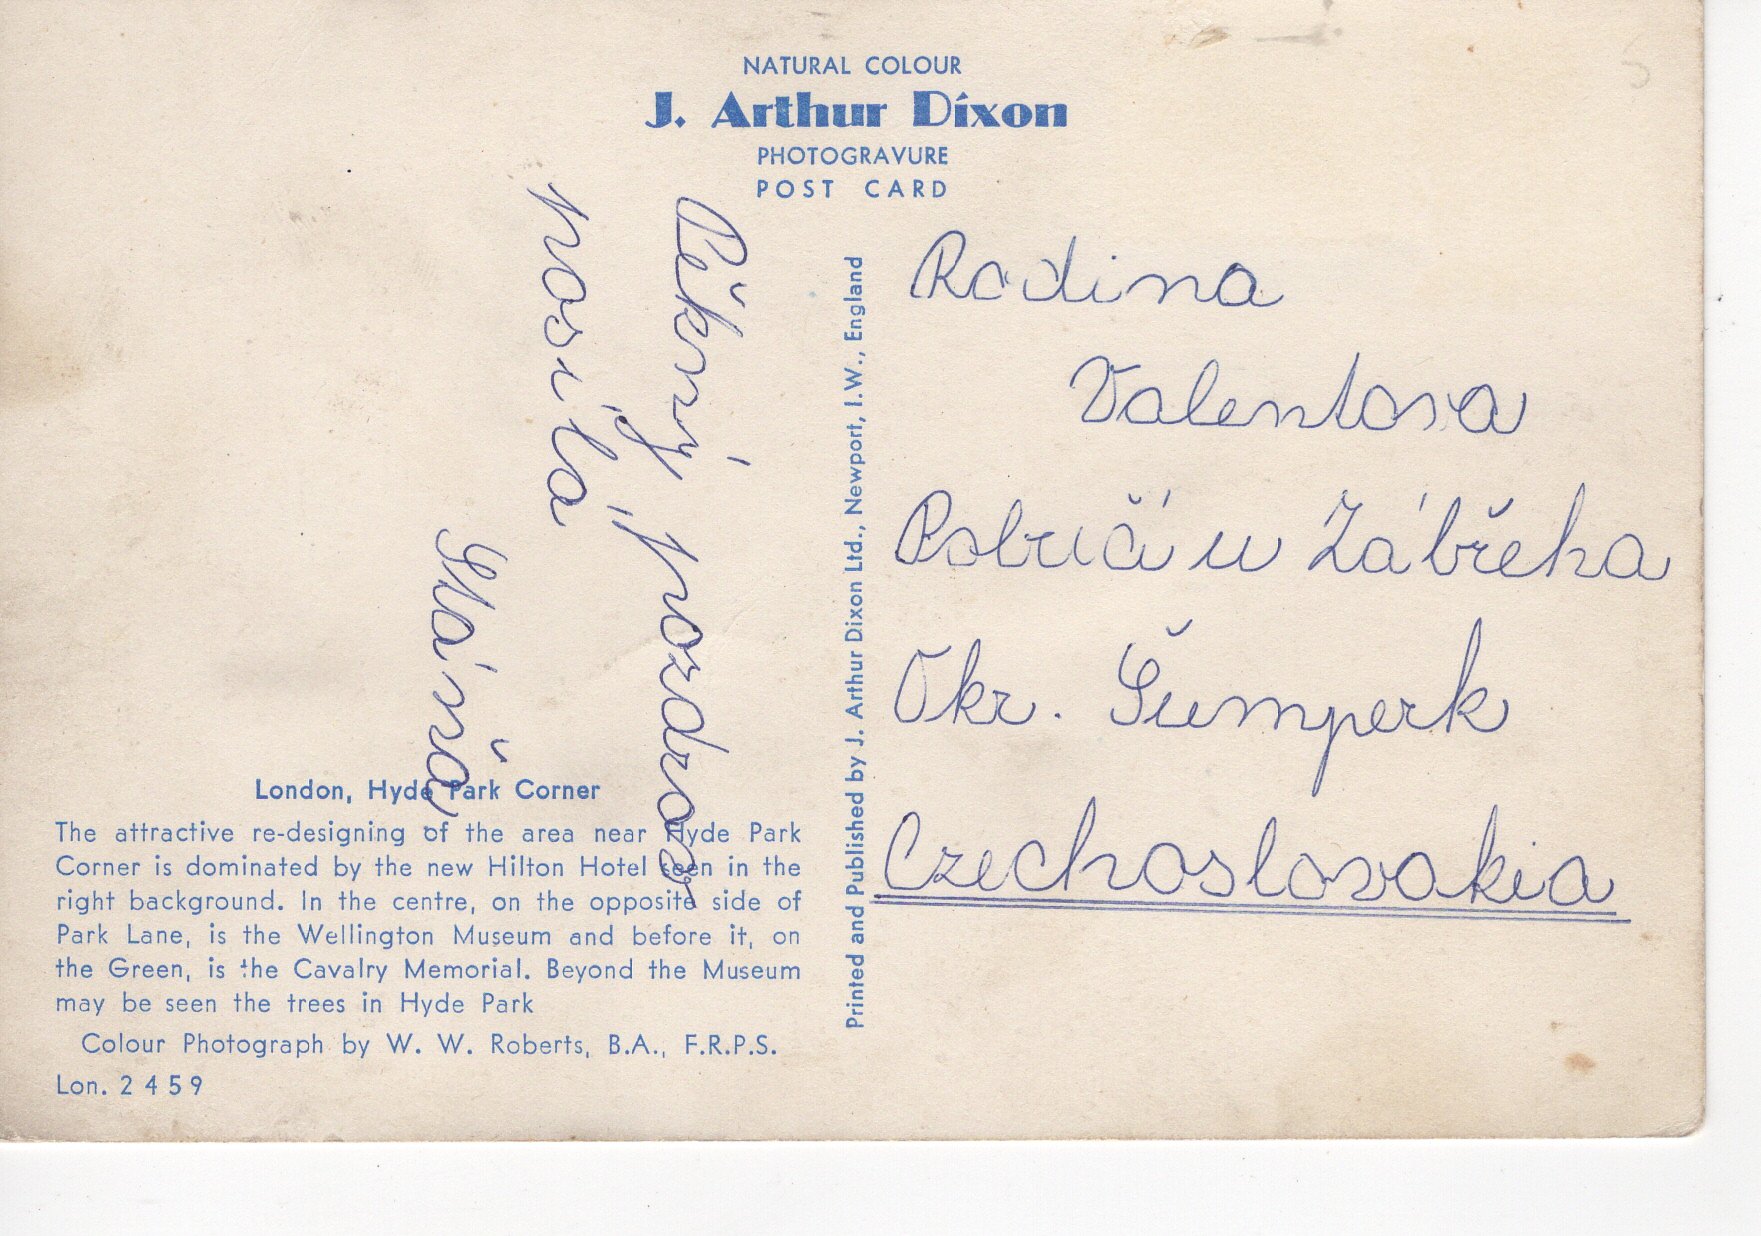 NATURAL COLOUR
J. Arthur Dixon
PHOTOGRAVURE
POST CARD
Pěkný pozdrav
posílá
Máňa
London, Hyde Park Corner
The attractive re-designing of the area near Hyde Park
Corner is dominated by the new Hilton Hotel seen in the
right background. In the centre, on the opposite side of
Park Lane, is the Wellington Museum and before it, on
the Green, is the Cavalry Memorial. Beyond the Museum
may be seen the trees in Hyde Park
Colour Photograph by W. W. Roberts, B.A., F.R.P.S.
Lon. 2459
Printed and Published by J. Arthur Dixon Ltd., Newport, I.W., England
Rodina
Valentova
u Zábřeha
Okr. Šumperk
Czechoslovakia